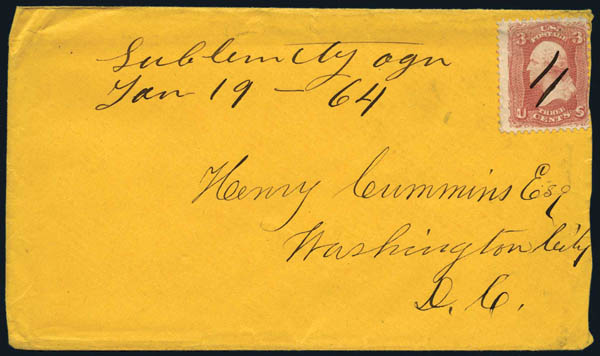 Sublemity ogn
Jan 19 - 64
3 U.S. 3
POSTAGE
U THREE S
CENTS
Henry Cummins Esq
Washington City
D. C.